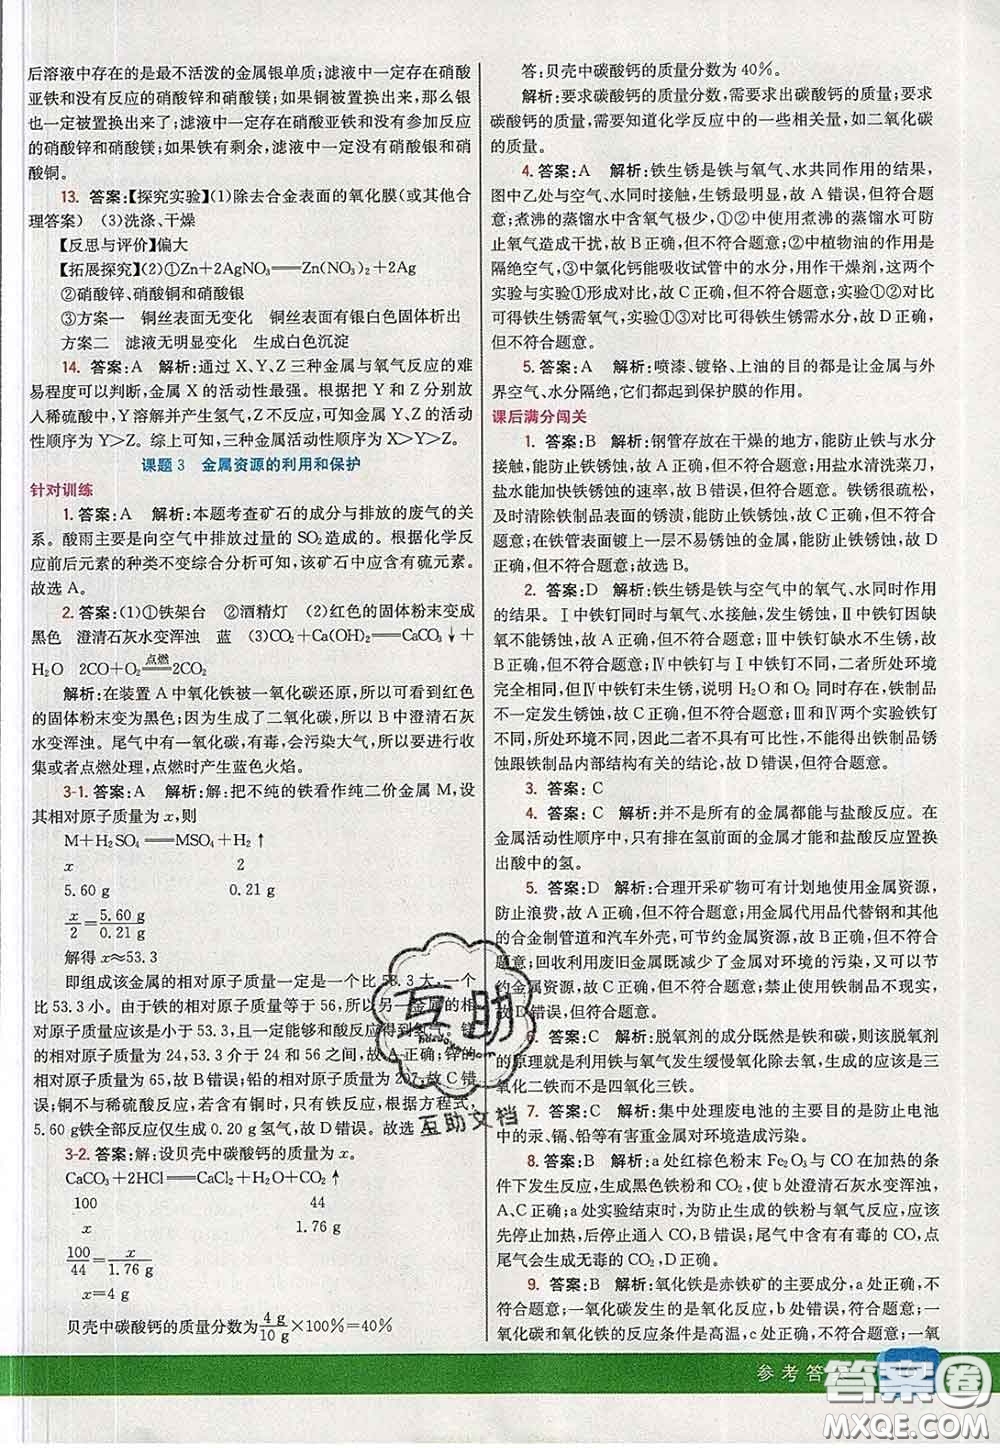 后溶液中存在的是最不活泼的金属银单质；滤液一定存在硝酸
亚铁和没有反应的硝酸锌和硝酸镁；如果铜被置换出来，那么银
也一定被置换出来了；滤液一定存在硝酸亚铁和没有参加反应
的硝酸锌和硝酸镁；如果铁有剩余，滤液中一定没有硝酸银和硝
酸铜。
13. 答案：【探究实验】(1)除去合金表面的氧化膜(或其他合
理答案) (3)洗涤、干燥
【反思与评价】偏大
【拓展探究】(2)①Zn+2AgNO₃══Zn(NO₃)₂+2Ag
②硝酸锌、硝酸铜和硝酸银
③方案一 铜丝表面无变化 铜丝表面有银白色固体析出
方案二 滤液无明显变化 生成白色沉淀
14. 答案：A 解析：通过 X、Y、Z 三种金属与氧气反应的难
易程度可以判断，金属 X 的活动性最强。根据把 Y 和 Z 分别放
入稀硫酸中，Y 溶解并产生氢气，Z 不反应，可知金属 Y、Z 的活动
性顺序为 Y>Z。综上可知，三种金属活动性顺序为 X>Y>Z。
课题 3 金属资源的利用和保护
针对训练
1. 答案：A 解析：本题考查矿石的成分与排放的废气的关
系。酸雨主要是向空气中排放过量的 SO₂ 造成的。根据化学反
应前后元素的种类不变综合分析可知，该矿石中应含有硫元素。
故选 A。
2. 答案：(1)①铁架台 ②酒精灯 (2)红色的固体粉末变成
黑色 澄清石灰水变浑浊 蓝 (3)CO₂+Ca(OH)₂══CaCO₃↓+
H₂O 2CO+O₂══点燃══2CO₂
解析：在装置 A 中氧化铁被一氧化碳还原，所以可看到红色
的固体粉末变为黑色；因为生成了二氧化碳，所以 B 中澄清石灰
水变浑浊。尾气中有一氧化碳，有毒，会污染大气，所以要进行收
集或者点燃处理，点燃时产生蓝色火焰。
3-1. 答案：A 解析：解：把不纯的铁看作纯二价金属 M，设
其相对原子质量为 x，则
M+H₂SO₄══MSO₄+H₂↑
x 2
5.60 g 0.21 g
x/2=5.60 g/0.21 g
解得 x≈53.3
即组成该金属的相对原子质量一定是一个比 53.3 大，一个
比 53.3 小。由于铁的相对原子质量等于 56，所以另一金属的相
对原子质量应该是小于 53.3，且一定能够和酸反应得到氢气；镁
的相对原子质量为 24，53.3 介于 24 和 56 之间，故 A 正确；锌的
相对原子质量为 65，故 B 错误；铅的相对原子质量为 207，故 C 错
误；铜不与稀硫酸反应，若含有铜时，又因为，根据方程式，
5.60 g铁全部反应仅生成 0.20 g 氢气，故 D 错误。故选 A。
3-2. 答案：解：设贝壳中碳酸钙的质量为 x。
CaCO₃+2HCl══CaCl₂+H₂O+CO₂↑
100 44
x 1.76 g
100/44=x/1.76 g
x=4 g
贝壳中碳酸钙的质量分数为4 g/10 g×100%=40%
答：贝壳中碳酸钙的质量分数为 40%。
解析：要求碳酸钙的质量分数，需要求出碳酸钙的质量；要求
碳酸钙的质量，需要知道化学反应中的一些相关量，如二氧化碳
的质量。
4. 答案：A 解析：铁生锈是铁与氧气、水共同作用的结果，
图中乙处与空气、水同时接触，生锈最明显，故 A 错误，但符合题
意；煮沸的蒸馏水中含氧气极少，①②中使用煮沸的蒸馏水可防
止氧气造成干扰，故 B 正确，但不符合题意；②中植物油的作用是
隔绝空气，③中氯化钙能吸收试管中的水分，用作干燥剂，这两个
实验与实验①形成对比，故 C 正确，但不符合题意；实验①②对比
可得铁生锈需氧气，实验①③对比可得铁生锈需水分，故 D 正确，
但不符合题意。
5. 答案：A 解析：喷漆、镀铬、上油的目的都是让金属与外
界空气、水分隔绝，它们都起到保护膜的作用。
课后满分闯关
1. 答案：B 解析：钢管存放在干燥的地方，能防止铁与水分
接触，能防止铁锈蚀，故 A 正确，但不符合题意；用盐水清洗菜刀，
盐水能加快铁锈蚀的速率，故 B 错误，但符合题意。铁锈很疏松，
及时清除铁制品表面的锈渍，能防止铁锈蚀，故 C 正确，但不符合题
意。在铁管表面镀上一层不易锈蚀的金属，能防止铁锈蚀，故 D
正确，但不符合题意。故选 B。
2. 答案：D 解析：铁生锈是铁与空气中的氧气、水同时作用
的结果。Ⅰ中铁钉同时与氧气、水接触，发生锈蚀，Ⅱ中铁钉因缺
氧气不能锈蚀，故 A 正确，但不符合题意；Ⅲ中铁钉因缺少水而不
生锈，故 B 正确，但不符合题意；Ⅳ中铁钉与Ⅰ中铁钉不同，二者所处环境
完全相同，但Ⅳ中铁钉未生锈，说明 H₂O 和 O₂ 同时存在，铁制品
不一定发生锈蚀，故 C 正确，但不符合题意；Ⅲ和Ⅳ两个实验铁钉
不同，所处环境不同，因此二者不具有可比性，不能得出铁制品锈
蚀跟铁制品内部结构有关的结论，故 D 错误，但符合题意。
3. 答案：C
4. 答案：C 解析：并不是所有的金属都能与盐酸反应。在
金属活动性顺序中，只有排在氢前面的金属才能和盐酸反应置换
出酸中的氢。
5. 答案：D 解析：合理开采矿物可有计划地使用金属资源，
防止浪费，故 A 正确，但不符合题意；用金属代用品代替钢和其他
的合金制管道和汽车外壳，可节约金属资源，故 B 正确，但不符合
题意；回收利用废旧金属既减少了金属对环境的污染，又可以节
约金属资源，故 C 正确，但不符合题意；禁止使用铁制品不现实，
故 D 错误，但符合题意。
6. 答案：C 解析：脱氧剂的成分既然是铁和碳，则该脱氧剂
的原理就是利用铁与氧气发生缓慢氧化除去氧，生成的应该是三
氧化二铁而不是四氧化三铁。
7. 答案：C 解析：集中处理废电池的主要目的是防止电池
中的汞、镉、铅等有害重金属对环境造成污染。
8. 答案：B 解析：a 处红棕色粉末 Fe₂O₃ 与 CO 在加热的条
件下发生反应，生成黑色铁粉和 CO₂，使 b 处澄清石灰水变浑浊，
A、C 正确；实验结束时，为防止生成的铁粉与氧气反应，应该
先停止加热，后停止通入 CO，B 错误；尾气中含有有毒的 CO，点燃
尾气会生成无毒的 CO₂，D 正确。
9. 答案：B 解析：氧化铁是赤铁矿的主要成分，a 处正确，不
符合题意；一氧化碳发生的是氧化反应，b 处错误，符合题意；一
氧化碳和氧化铁的反应条件是高温，c 处正确，不符合题意；一氧
参考答
互助
互助文档
答案圈
MXQE.COM